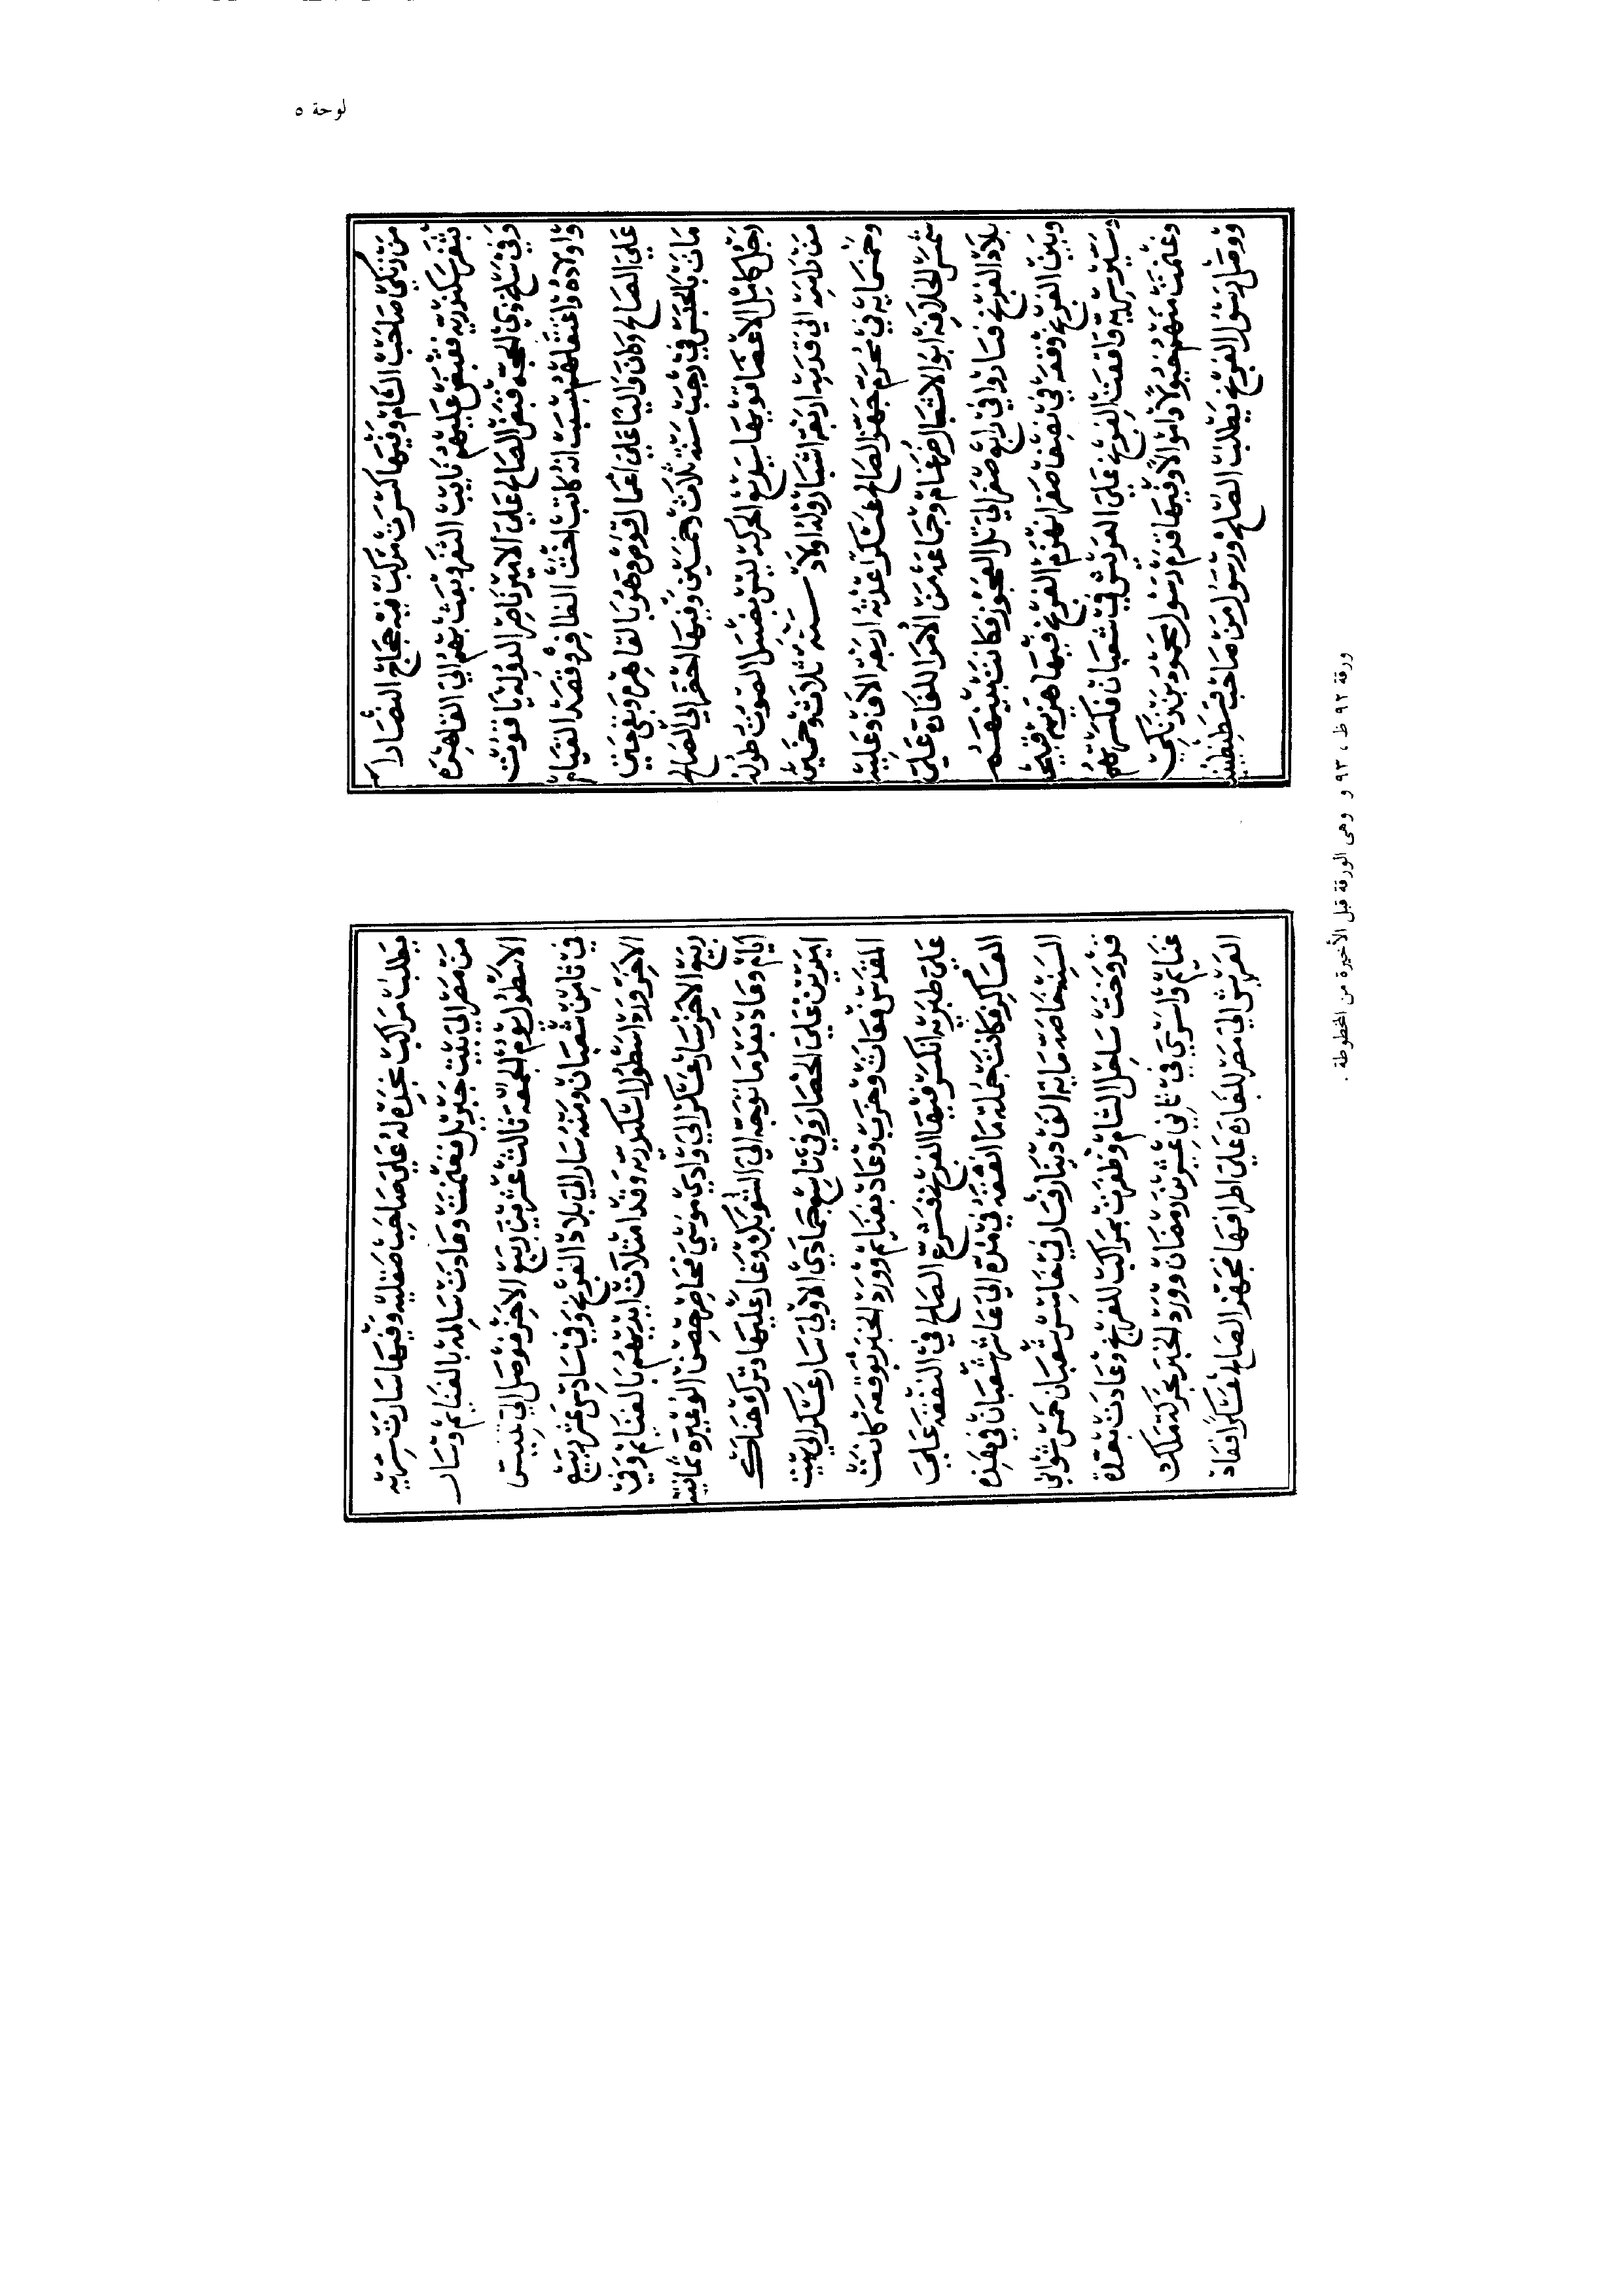 لوحة ٥
من زنكي صاحب الشام وفيها كسرت مركب فيه حجاج النصارا
بثغر سكندريه فقبض عليهم نايب الثغر وبعث بهم الي القاهره
وفي سلخ ذي الحجه قبض الصالح علي الامير ناصر الدوله ياقوت
واولاده واعتقلهم بسبب انه كاتب اخت الظافر وقصد القيام
علي الصالح وكان واليا علي اعمال قوص وهو بالقاهره وبقي حتي
مات بالحبس في رجب سنة ثلاث وخمسين وفيها احضر الي الصالح
رجل كامل الاعضا قوي بها سريع الحركه ليس بضئيل الصوت طوله
من راسه الي قدميه اربعة اشبار وله اولاد سنة ثلاث وخمسين
وخمسمايه في محرم جهز الصالح عسكرا عدته اربعة الاف وعليه
شمس الخلافه ابو الاشبال ضرغام وجماعه من الامرا للغاره علي
بلاد الفرنج فساروا في رابع صفر الي تل العجول فكانت بينهم
وبين الفرنج وقعه في نصف صفر انهزم الفرنج فيها هزيمة قبيحه
وسير سرية واقعت الفرنج علي العريش في شعبان فكسرتهم
وغنمت منهم خيولا واموالا وفيها قدم رسول محمود بن زنكي
ووصل رسول الفرنج يطلب الصلح ورسول من صاحب قسطنطينيه
يطلب مراكب نجدة له علي صاحب صقليه وفيها سارت سريه
من مصر الي بيت جبريل فغنمت وعادت سالمة بالغنايم وسار
الاسطول يوم الجمعه ثالث عشرين ربيع الاخر فوصل الي تنيس
في ثامن شعبان ومنه سار الي بلاد الفرنج وفي سادس عشر ربيع
الاخر ورد اسطول اسكندريه وقد امتلات ايديهم بالغنايم وفي
ربيع الاخر سار عسكر الي وادي موسي فحاصر حصن الوعيره ثمانية
ايام وعاد بعد ما توجه الي الشوبك وغار عليها وترك هناك
اميرين علي الحصار وفي تاسع جمادي الاولي سار عسكر الي بيت
المقدس فعاث وخرب وعاد بغنايم وورد الخبر بوقعه كانت
علي طبريه انكسر فيها الفرنج فشرع الصالح في النفقه علي
العساكر فكانت جملة ما انفقه في مدة الي عاشر شعبان في هذه
السنه خاصه مايه الف دينار فسار في خامس شعبان خمس شواني
فدوخت ساحل الشام وظفرت بمراكب للفرنج وعادت بعدة
غنايم واسري في ثاني عشر رمضان وورد الخبر بحركة ملك
العريش الي مصر للغاره علي اطرافها فجهز الصالح عسكرا فعاد
ورقة ٩٢ ظ ، ٩٣ و وهى الورقة قبل الأخيرة من المخطوطة .